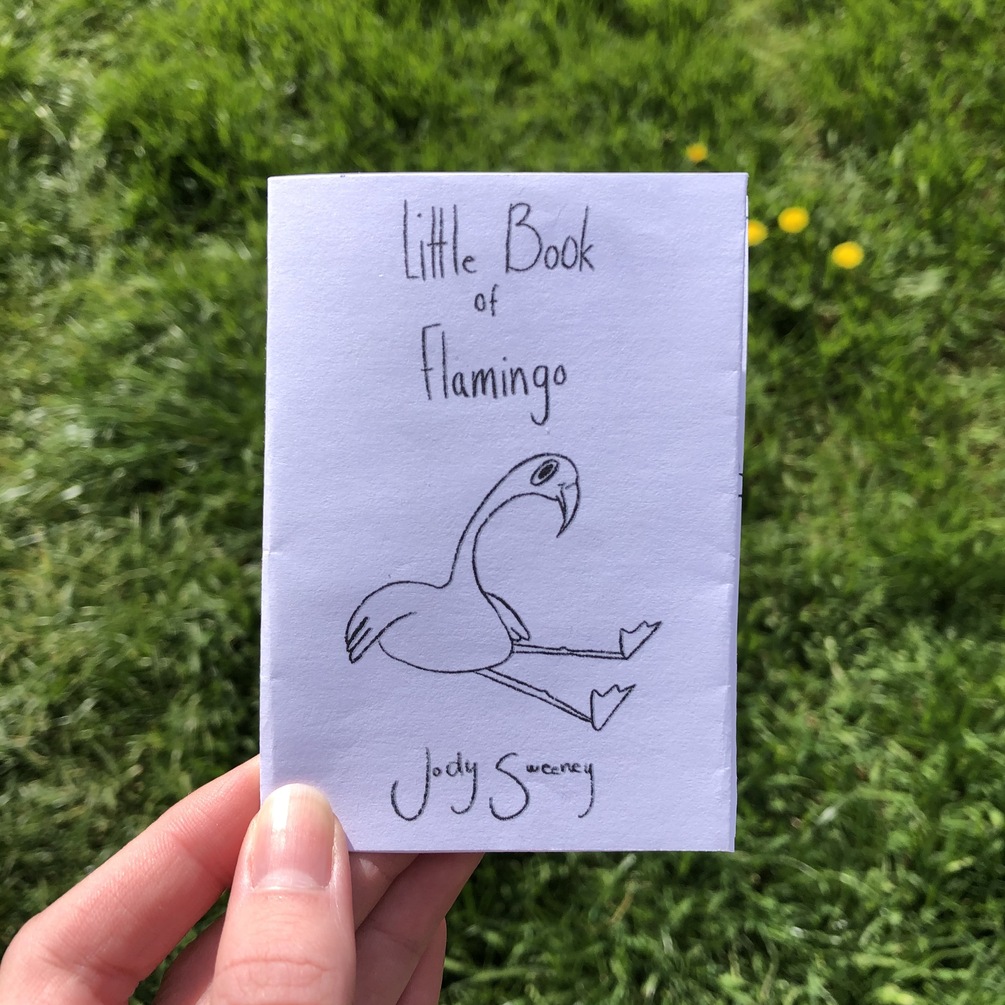 Little Book
of
Flamingo
Jody Sweeney